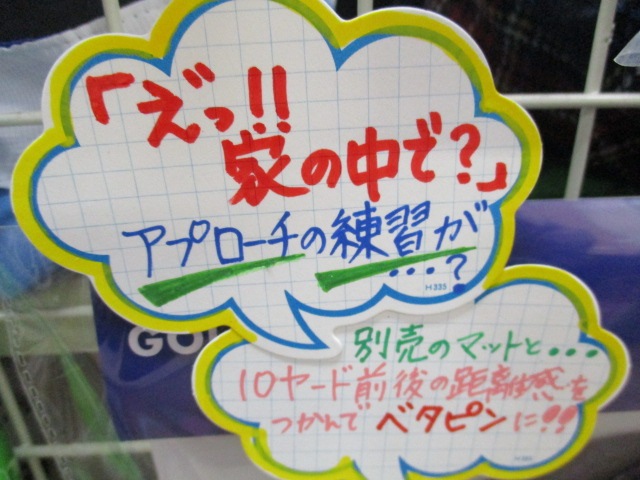 「えっ!!
家の中で?」
アプローチの練習が
・・・?
H335
GOL
別売のマットと・・・
10ヤード前後の距離感を
つかんで ベタピンに!!